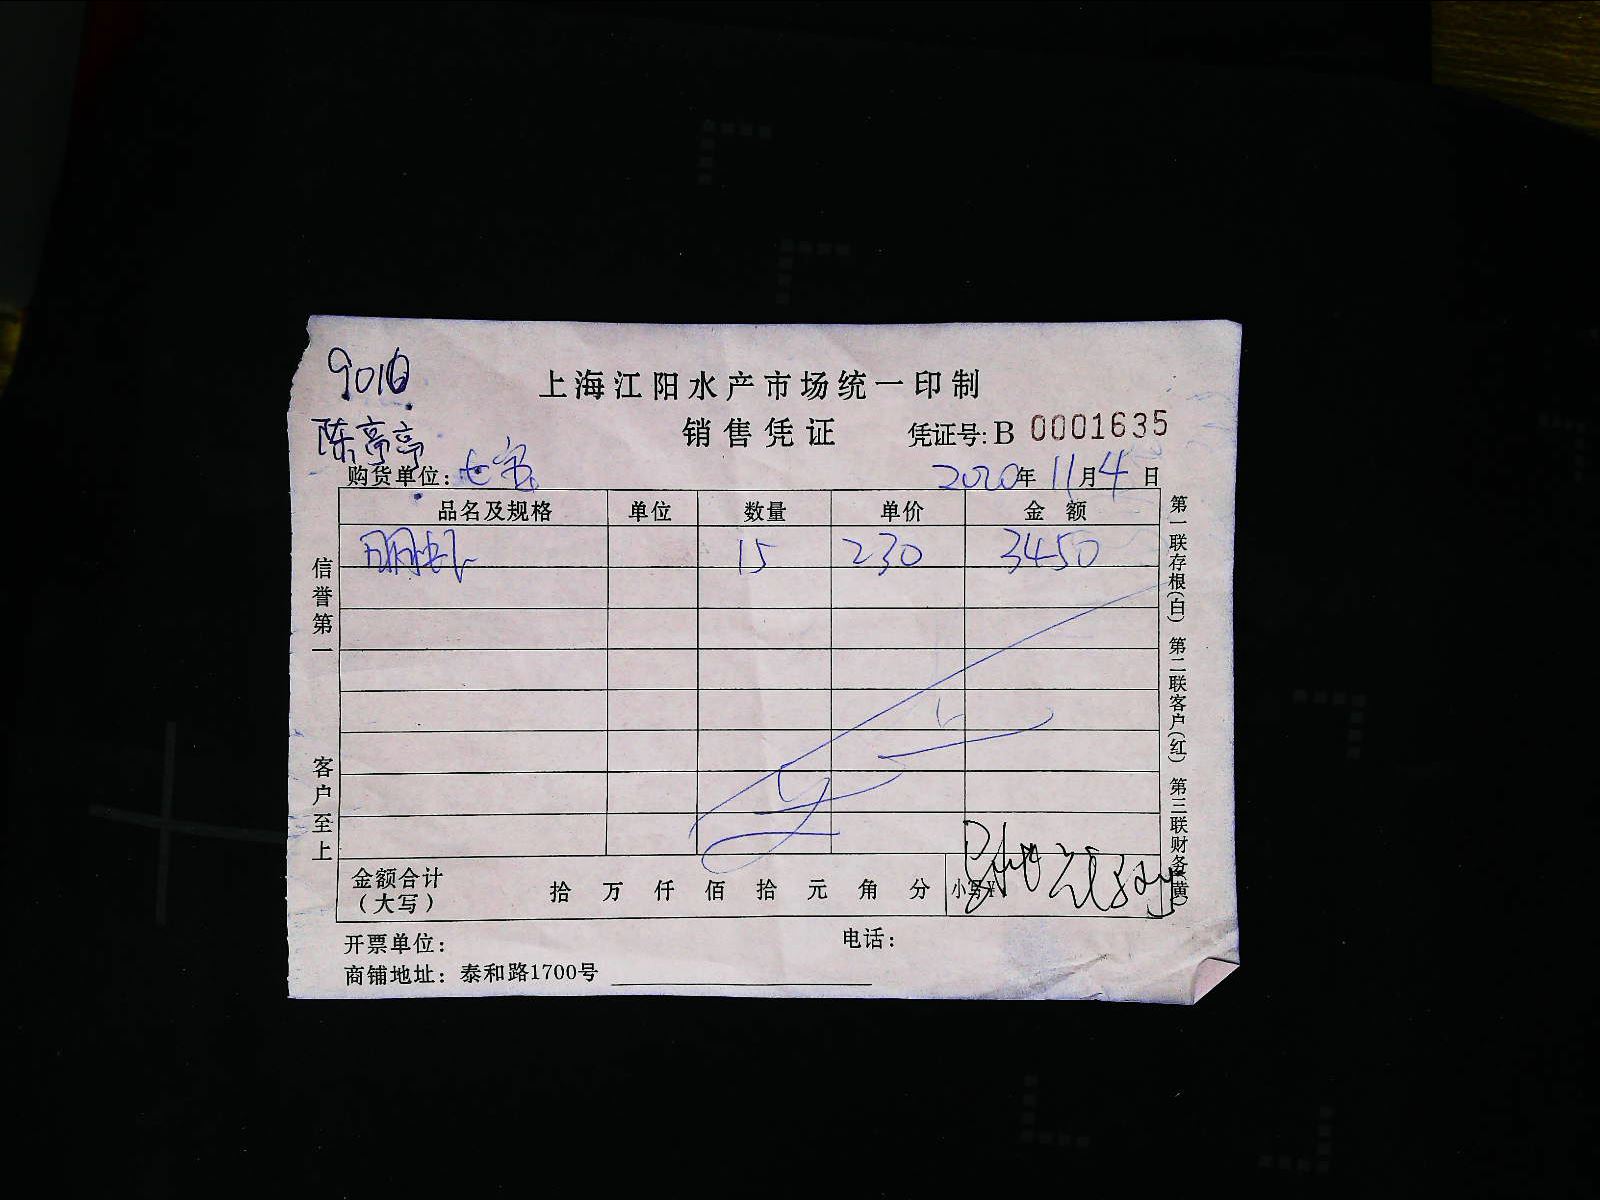 上海江阳水产市场统一印制
陈亭亭
销售凭证 凭证号: B 0001635
购货单位: 七宝 2020年11月4日
品名及规格 单位 数量 单价 金额
明虾 15 230 3450
信誉第一 客户至上
第一联存根(白) 第二联客户(红) 第三联财务(黄)
金额合计
(大写) 拾 万 仟 佰 拾 元 角 分 小写¥
开票单位: 电话:
商铺地址: 泰和路1700号